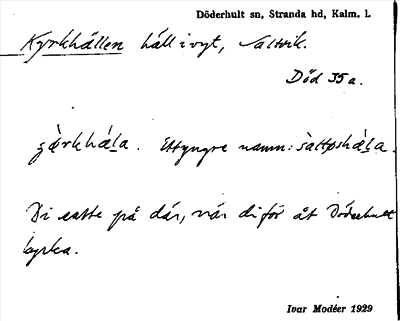 Döderhult sn, Stranda hd, Kalm. l.
Kyrkhällen häll i vyt, Saltvik.
Död 35 a.
Ett yngre namn:
Di satte på där, när di för åt Döderhult
kyrka.
Ivar Modéer 1929